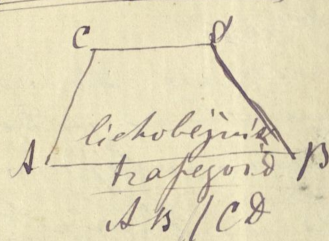 C D
lichobéjnik
A trapezoid B
AB / CD